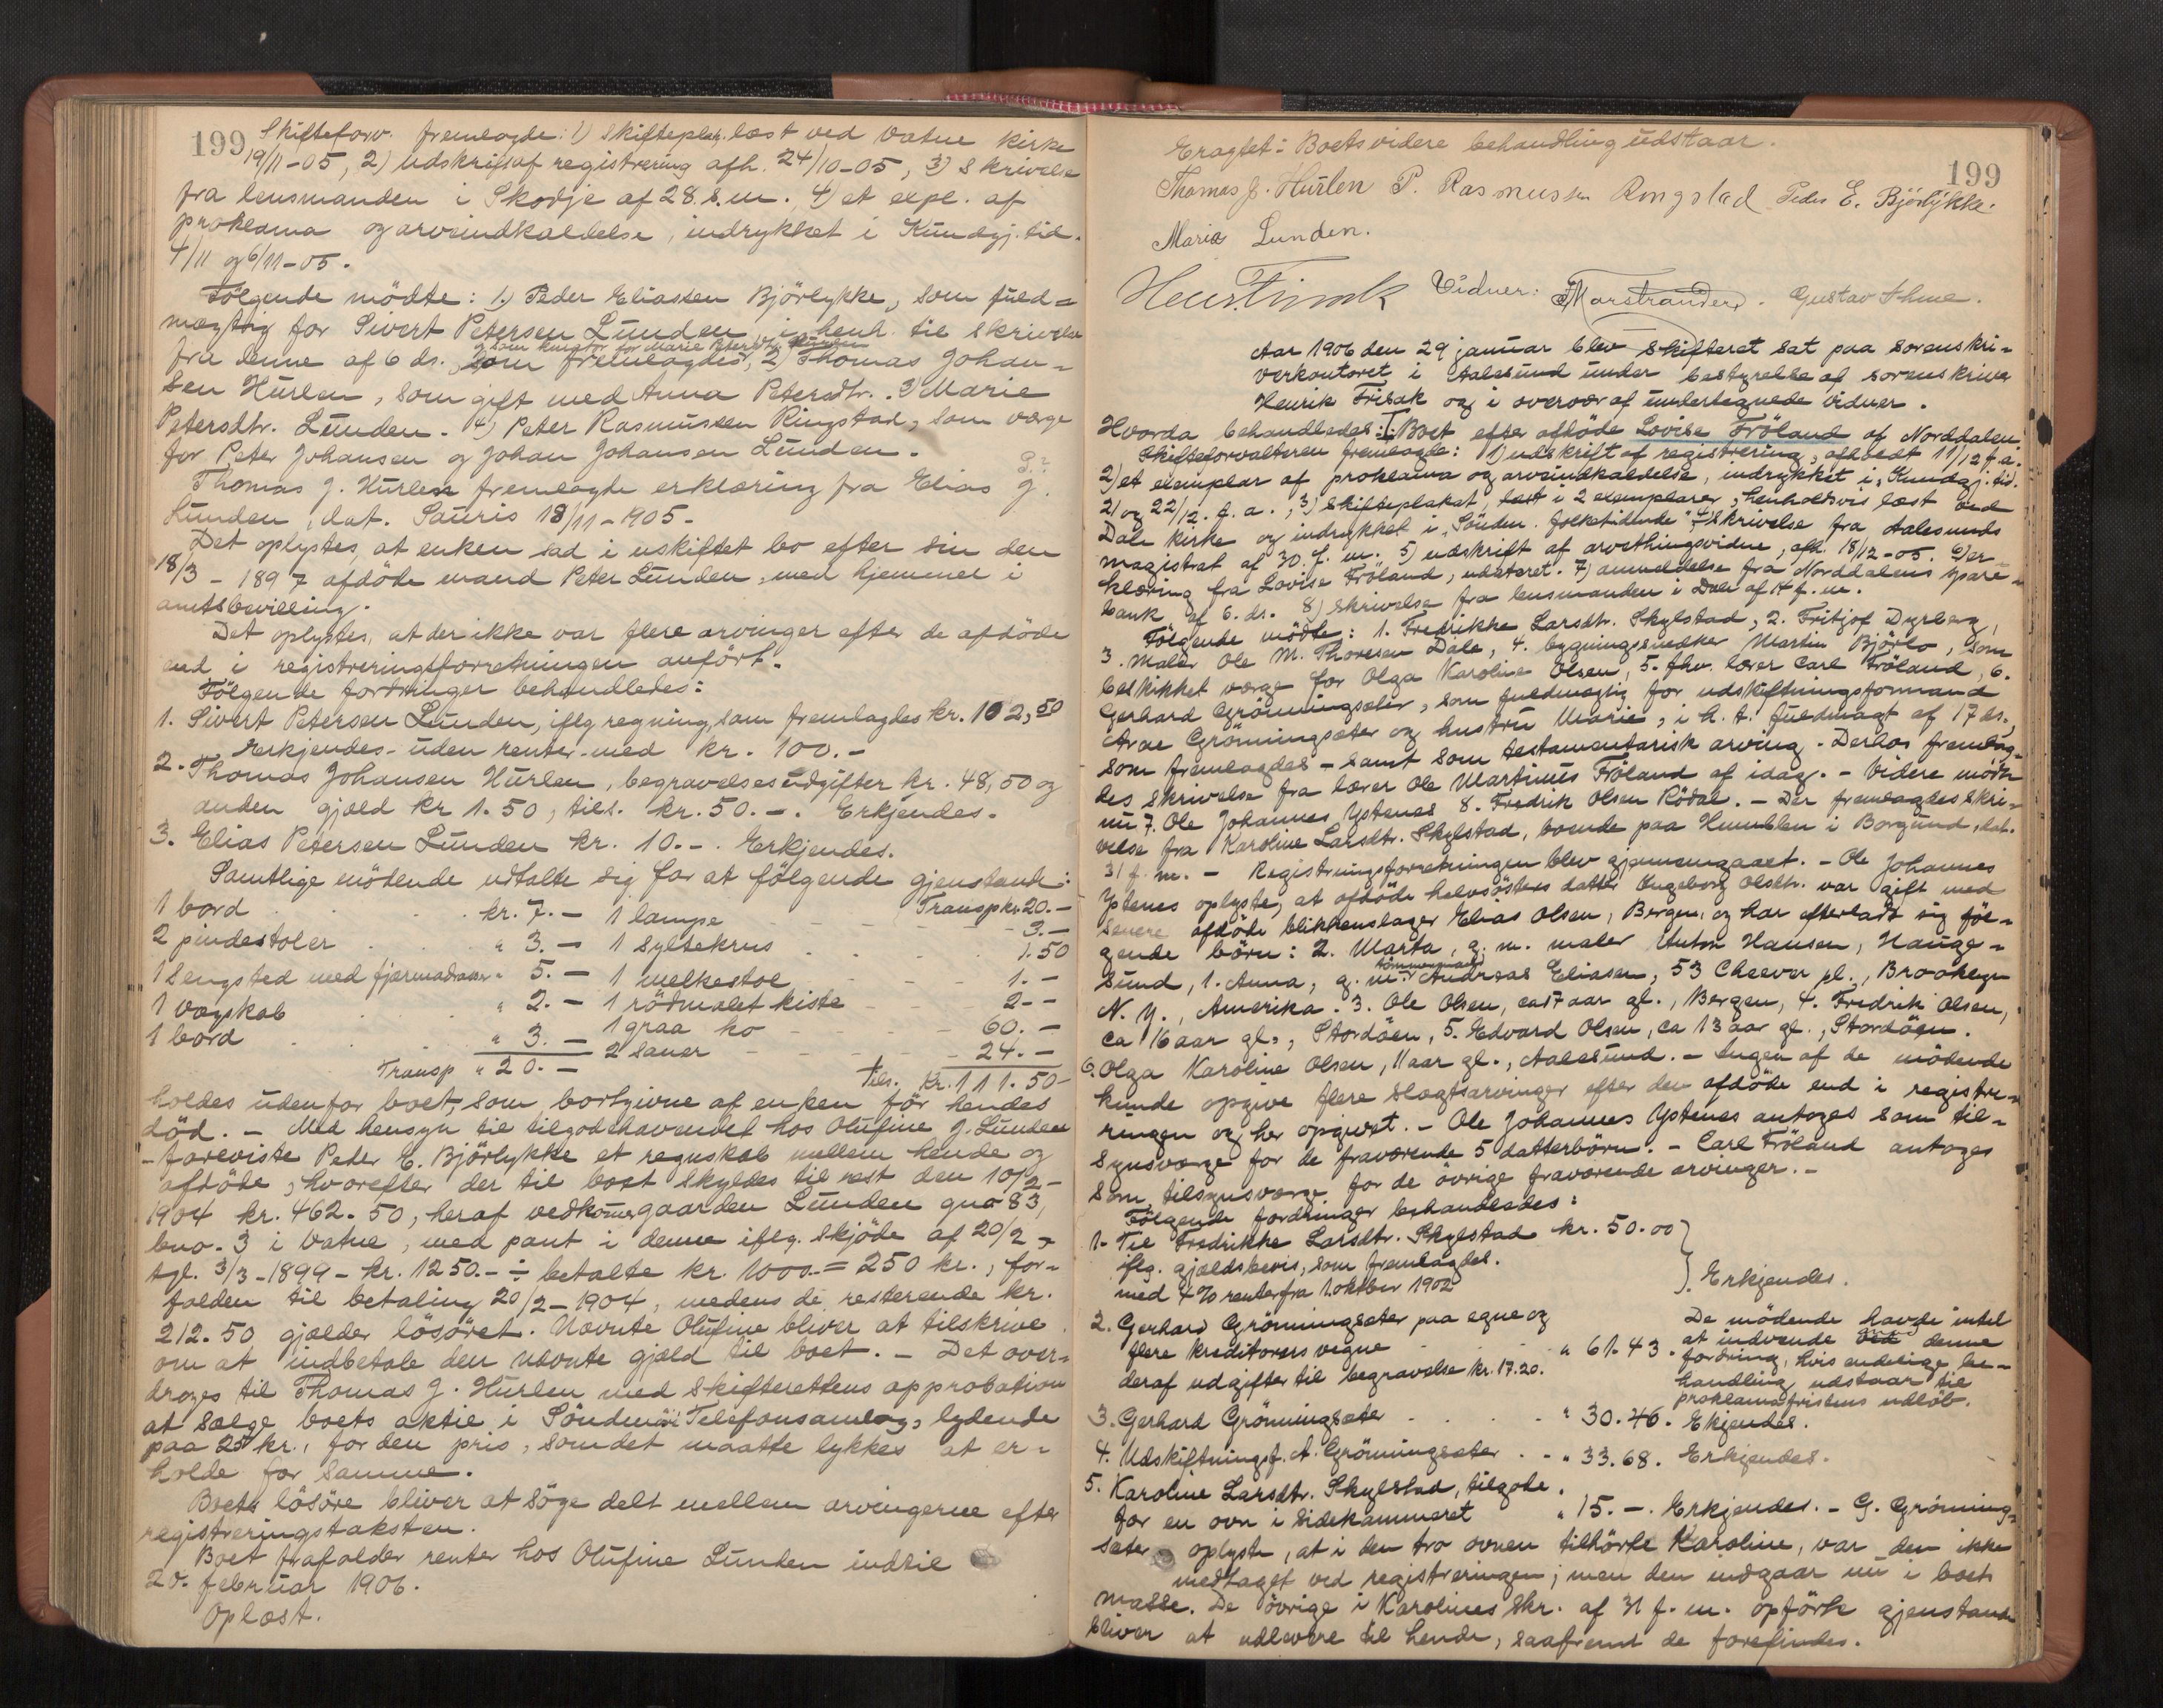 199 Skifteforv. fremlagde: 1) Skifteplak. læst ved Vatne kirke
19/11-05, 2) Udskrift af registrering afh. 24/10-05, 3) Skrivelse
fra lensmanden i Skodje af 28. s.m. 4) et expl. af
proklama og arveindkaldelse, indrykket i Kundgj. tid.
4/11 og 6/11-05.
Følgende mødte: 1.) Peder Eliassen Bjørlykke, som fuld=
mægtig for Sivert Petersen Lunden, i henh. til skrivelse
og som kurator for Marie Petersdtr. Lunden
fra denne af 6 ds., som fremlagdes, 2) Thomas Johan=
sen Hurlen, som gift med Anna Petersdtr. 3 Marie
Petersdtr. Lunden. 4) Peter Rasmussen Ringstad, som værge
for Peter Johansen og Johan Johansen Lunden.
Thomas J. Hurlen fremlagde erklæring fra Elias P.
Lunden, dat. Sauris 18/11-1905-
Det oplystes, at enken sad i uskiftet bo efter sin den
18/3-1897 afdøde mand Peter Lunden, med hjemmel i
amtsbevilling.
Det oplystes, at der ikke var flere arvinger efter de afdøde
end i registreringsforretningen anført.
Følgende fordringer behandledes:
1. Sivert Petersen Lunden, iflg regning, som fremlagdes kr. 102,50
Erkjendes - uden renter - med kr. 100.-
2. Thomas Johansen Hurlen, begravelsesudgifter kr. 48,50 og
anden gjæld kr 1.50, tils. kr. 50.-. Erkjendes.
3. Elias Petersen Lunden kr. 10.-. Erkjendes.
Samtlige mødende udtalte sig for at følgende gjenstande:
1 bord . . . kr. 7.- Transp kr. 20.-
1 lampe - - - 3.-
2 pindestoler . . " 3.- 1 syltekrus . . . 1.50
1 sengsted med fjærmadras " 5.- 1 melkestol - - - 1.-
1 vægskab . . " 2.- 1 rødmalet kiste - 2--
1 bord . . " 3.- 1 graa ko - - - 60.-
Transp " 20.- 2 sauer - - - 24.-
tils. kr. 111.50-
holdes udenfor boet, som bortgivne af enken før hendes
død. - Med hensyn til tilgodehavendet hos Olufine J. Lunden
- foreviste Peter E. Bjørlykke et regnskab mellem hende og
afdøde, hvorefter der til boet skyldes til rest den 10/2-
1904 kr. 462.50, heraf vedkommer gaarden Lunden gno 83,
bno. 3 i Vatne, med pant i denne iflg. skjøde af 20/2 -
tgl. 3/3-1899 - kr. 1250.- ÷ betalte kr. 1000.- = 250 kr., for=
falden til betaling 20/2-1904, medens de resterende kr.
212.50 gjælder løsøret. Nævnte Olufine bliver at tilskrive
om at indbetale den nævnte gjæld til boet. - Det over=
drages til Thomas J. Hurlen med skifterettens approbation
at sælge boets aktie i Søndmøri Telefonsamlag, lydende
paa 25 kr., for den pris, som det maatte lykkes at er=
holde for samme.
Boets løsøre bliver at søge delt mellem arvingerne efter
registreringstaksten.
Boet frafalder renter hos Olufine Lunden indtil
20. februar 1906.
Oplæst.
Eragtet: Boets videre behandling udstaar.
199
Thomas J. Hurlen P. Rasmussen Ringstad Peder E. Bjørlykke.
Maria Lunden.
Henr. Finsak Vidner: Marstrander. Gustav Thue.
Aar 1906 den 29 januar blev skifteret sat paa sorenskri=
verkontoret i Aalesund under bestyrelse af sorenskriver
Henrik Frisak og i overvær af undertegnede vidner.
Hvorda behandledes: I. Boet efter afdøde Lovise Frøland af Norddalen.
Skifteforvalteren fremlagde: 1) udskrift af registrering, afholdt 11/12 f.a.
2) et exemplar af proklama og arveindkaldelse, indrykket i "Kundgj. tid.
21 og 22/12. f. a., 3) Skifteplakat, læst i 2 exemplarer, henholdsvis læst ved
Dale kirke og indrykket i "Søndm. folketidende" 4) Skrivelse fra Aalesunds
magistrat af 30 f. m. 5) udskrift af arvethingsvidne, afh. 18/12-05. 6) er=
klæring fra Lovise Frøland, udateret. 7) anmeldelse fra Norddalens spare=
bank af 6. ds. 8) skrivelse fra lensmanden i Dale af 14 f. m.
Følgende mødte: 1. Fredrikke Larsdtr. Skylstad, 2. Fritjof Dyrberg,
3. maler Ole M. Thoresen Dale, 4. bygningssnedker Martin Bjørlo, som
beskikket værge for Olga Karoline Olsen, 5. fhv. lærer Carl Frøland, 6.
Gerhard Grønningsæter, som fuldmægtig for udskiftningsformand
Arne Grønningsæter og hustru Marie, i h. t. fuldmagt af 17 ds.,
som fremlagdes - samt som testamentarisk arving. Derhos fremlag=
des skrivelse fra lærer Ole Martinus Frøland af idag. - Videre mødte
nu 7. Ole Johannes Ystenes 8. Fredrik Olsen Rødal. - Der fremlagdes skri=
velse fra Karoline Larsdtr. Skylstad, boende paa Humblen i Borgund, dat.
31 f. m. - Registreringsforretningen blev gjennemgaaet. - Ole Johannes
Ystenes oplyste, at afdøde halvsøsters datter Ingeborg Olsdtr. var gift med
senere afdøde blikkenslager Elias Olsen, Bergen, og har efterladt sig føl=
gende børn: 2. Marta, g. m. maler Anton Hansen, Hauge=
tømmermand
sund, 1. Anna, g. m. Andreas Eliasen, 53 Cheever pl., Brooklyn
N. Y., Amerika. 3. Ole Olsen, ca 17 aar gl., Bergen, 4. Fredrik Olsen,
ca 16 aar gl., Stordøen, 5. Edvard Olsen, ca 13 aar gl., Stordøen.
6. Olga Karoline Olsen, 11 aar gl., Aalesund. - Ingen af de mødende
kunde opgive flere slægtsarvinger efter den afdøde end i registre=
ringen og her opgivet. - Ole Johannes Ystenes antoges som til=
synsværge for de fraværende 5 datterbørn. - Carl Frøland antoges
som tilsynsværge for de øvrige fraværende arvinger. -
Følgende fordringer behandledes:
1- Til Fredrikke Larsdtr. Skylstad kr. 50.00
iflg. gjældsbevis, som fremlagdes.
med 4% renter fra 1 oktober 1902 } Erkjendes.
2. Gerhard Grønningsæter paa egne og
flere kreditorers vegne . . " 61.43.
deraf udgifter til begravelse kr. 17.20.
De mødende havde intet
at indvende ved denne
fordring, hvis endelige be=
handling udstaar til
proklamafristens udløb.
3. Gerhard Grønningsæter . . . . " 30.46. Ekjendes.
4. Udskiftningsf. A. Grønningsæter . - " 33.68. Erkjendes.
5. Karoline Larsdtr. Skylstad, tilgode .
for en ovn i sidekammeret " 15.-. Erkjendes. - G. Grønning=
sæter oplyste, at i den tro ovnen tilhørte Karoline, var den ikke
medtaget ved registreringen; men den indgaar nu i boets
masse. De øvrige i Karolines skr. af 31 f. m. opførte gjenstande
bliver at udlevere til hende, saafremt de forefindes.